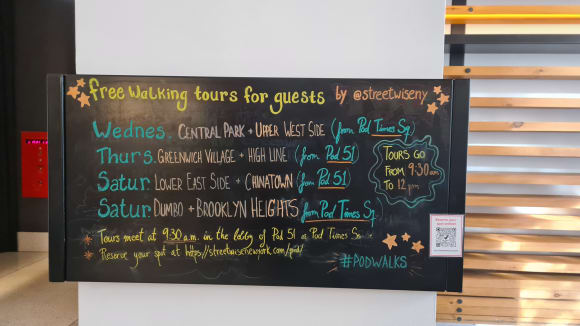 free Walking tours for guests by @streetwiseny
Wednes. CENTRAL PARK + UPPER WEST SIDE (from Pod Times Sq.
Thurs. GREENWICH VILLAGE + HIGH LINE (from Pod 51)
Satur. LOWER EAST SIDE + CHINATOWN (from Pod 51)
Satur. DUMBO + BROOKLYN HEIGHTS from Pod Times Sq.
TOURS GO
FROM 9:30 am
TO 12 pm
Tours meet at 9:30 a.m. in the lobby of Pod 51 or Pod Times Sq.
Reserve your spot at https://streetwisenewyork.com/pod/
#PODWALKS